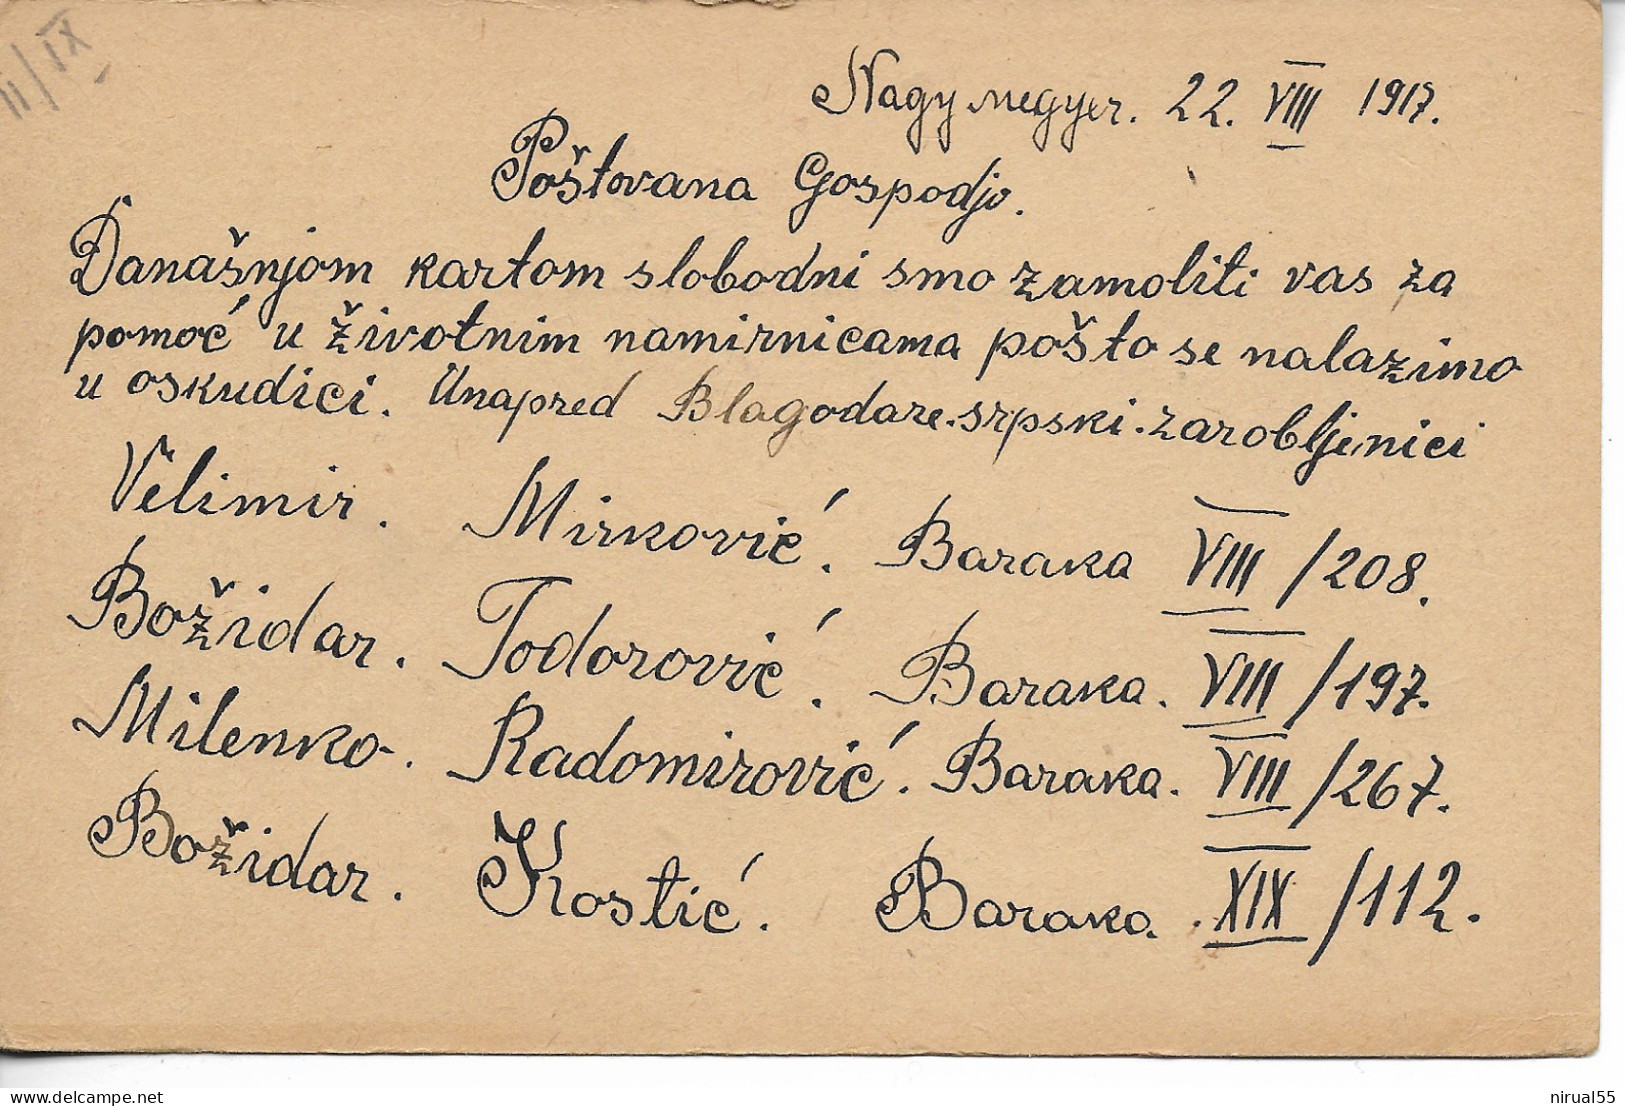 II/IX
Nagymegyer. 22. VIII 1917.
Poštovana Gospodjo.
Današnjom kartom slobodni smo zamoliti vas za
pomoć u životnim namirnicama pošto se nalazimo
u oskudici. Unapred Blagodare. srpski. zarobljenici
Velimir. Mirković. Baraka VIII/208.
Božidar. Todorović. Baraka. VIII/197.
Milenko. Radomirović. Baraka. VIII/267.
Božidar. Kostić. Baraka. XIX/112.
delcampe.net
nirual55